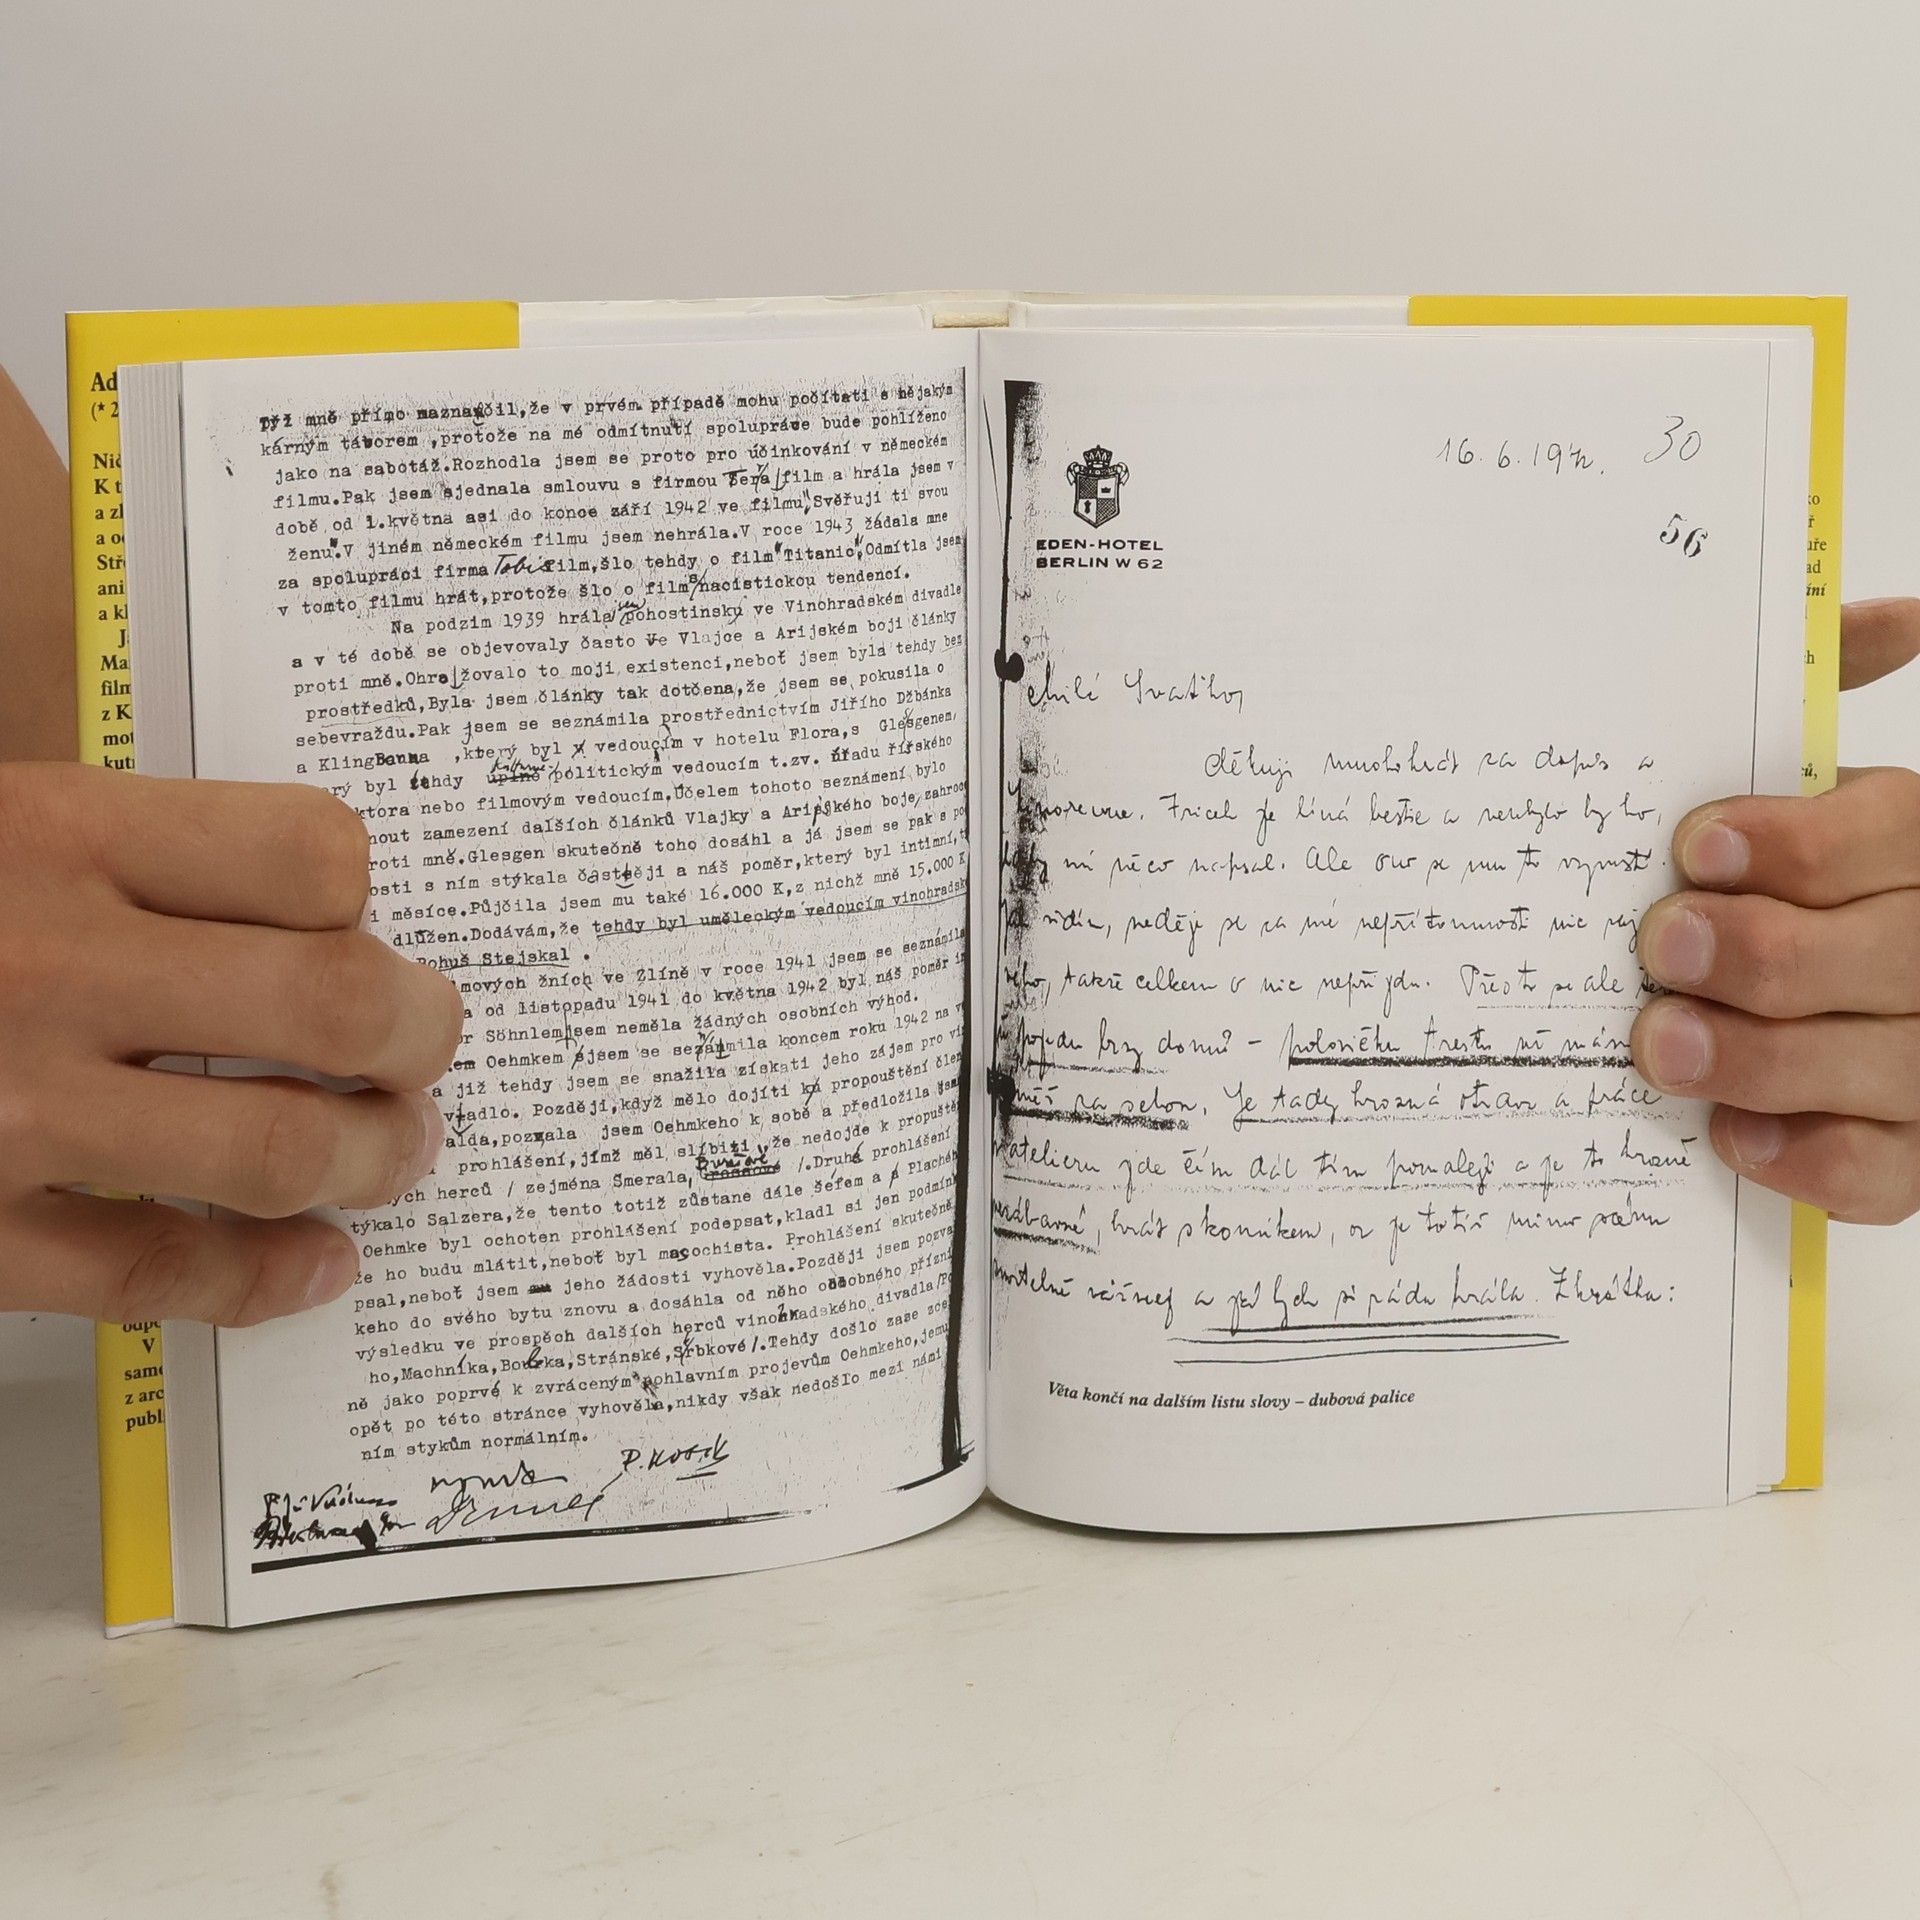 Týž mně přímo naznačil,že v prvém případě mohu počítati s nějakým
kárným táborem ,protože na mé odmítnutí spolupráce bude pohlíženo
jako na sabotáž.Rozhodla jsem se proto pro účinkování v německém
filmu.Pak jsem sjednala smlouvu s firmou Terra film a hrála jsem v
době od 1.května asi do konce září 1942 ve filmu"Svěřuji ti svou
ženu".V jiném německém filmu jsem nehrála.V roce 1943 žádala mne
za spolupráci firma Tobis film,šlo tehdy o film"Titanic".Odmítla jsem
v tomto filmu hrát,protože šlo o film s nacistickou tendencí.
Na podzim 1939 hrála jsem pohostinsky ve Vinohradském divadle
a v té době se objevovaly často ve Vlajce a Arijském boji články
proti mně.Ohrožovalo to moji existenci,neboť jsem byla tehdy bez
prostředků,Byla jsem články tak dotčena,že jsem se pokusila o
sebevraždu.Pak jsem se seznámila prostřednictvím Jiřího Džbánka
a Kling ,který byl vedoucím v hotelu Flora,s Glesgenem,
arý byl tehdy politickým vedoucím t.zv. úřadu říšského
ktora nebo filmovým vedoucím.Účelem tohoto seznámení bylo
nout zamezení dalších článků Vlajky a Arijského boje,
roti mně.Glesgen skutečně toho dosáhl a já jsem se pak s
osti s ním stýkala častěji a náš poměr,který byl intimní,
i měsíce.Půjčila jsem mu také 16.000 K,z nichž mně 15.000 K
dlužen.Dodávám,že tehdy byl uměleckým vedoucím vinohradsk
Bohuš Stejskal .
mových žních ve Zlíně v roce 1941 jsem se seznámila
a od listopadu 1941 do května 1942 byl náš poměr
or Söhnlem jsem neměla žádných osobních výhod.
em Oehmkem jsem se seznámila koncem roku 1942 na
a již tehdy jsem se snažila získati jeho zájem pro
adlo. Později,když mělo dojíti k propouštění člen
alda,pozvala jsem Oehmkeho k sobě a předložila jsem
prohlášení,jímž měl slíbiti,že nedojde k propuště
ých herců / zejména Šmerala, Buriové /.Druhé prohlášení
týkalo Salzera,že tento totiž zůstane dále šéfem a Plachéh
Oehmke byl ochoten prohlášení podepsat,kladl si jen podmínk
že ho budu mlátit,neboť byl masochista. Prohlášení skutečně
psal,neboť jsem jeho žádosti vyhověla.Později jsem pozva
keho do svého bytu znovu a dosáhla od něho osobného přízni
výsledku ve prospěch dalších herců vinohradského divadla/
ho,Machníka,Bourka,Stránské,Srbkové/.Tehdy došlo zase
ně jako poprvé k zvráceným pohlavním projevům Oehmkeho,jemu
opět po této stránce vyhověla,nikdy však nedošlo mezi námi
ním stykům normálním.
16. 6. 1942. 30
56
EDEN-HOTEL
BERLIN W 62
Milé Svaťiho,
Děkuji mnohokrát za dopis a
. Fricek je líná bestie a nebylo by ho,
mi něco napsal. Ale on se mu to
vidím, neděje se za mé nepřítomnosti nic
takže celkem o nic nepřijdu. Přesto se ale
pojedu brzy domů – polovičku trestu už mám
za sebou. Je tady hrozná otrava a práce
atelieru jde čím dál tím pomaleji a je to hrozně
nezábavné, hrát s komikem, on je totiž mimo scénu
a já bych si ráda hrála. Zkrátka:
Věta končí na dalším listu slovy – dubová palice
Ad
(* 2
Nič
K t
a zl
a od
Stř
ani
a kl
Ja
Ma
film
z K
mot
kutr
odpo
V
samo
z arc
publ